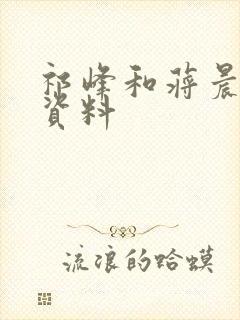 祁峰和蒋晨
资料
流浪的哈蟆